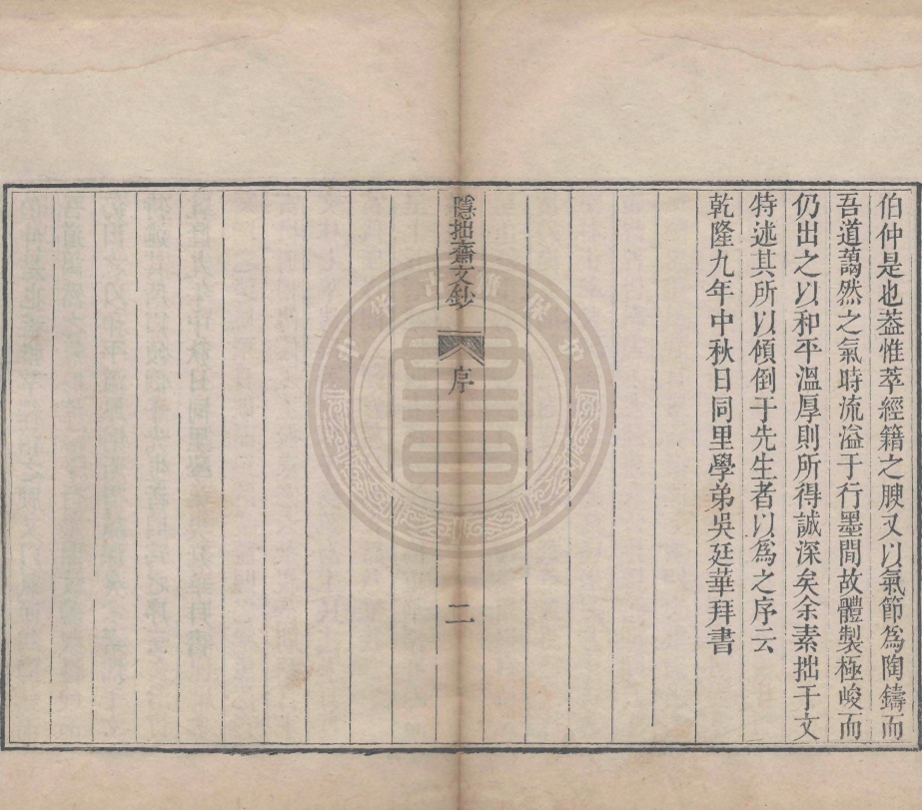 伯仲是也葢惟萃經籍之腴又以氣節為陶鑄而
吾道藹然之氣時流溢于行墨間故體製極峻而
仍出之以和平溫厚則所得誠深矣余素拙于文
特述其所以傾倒于先生者以為之序云
乾隆九年中秋日同里學弟吳廷華拜書
隱拙齋文鈔
序
二